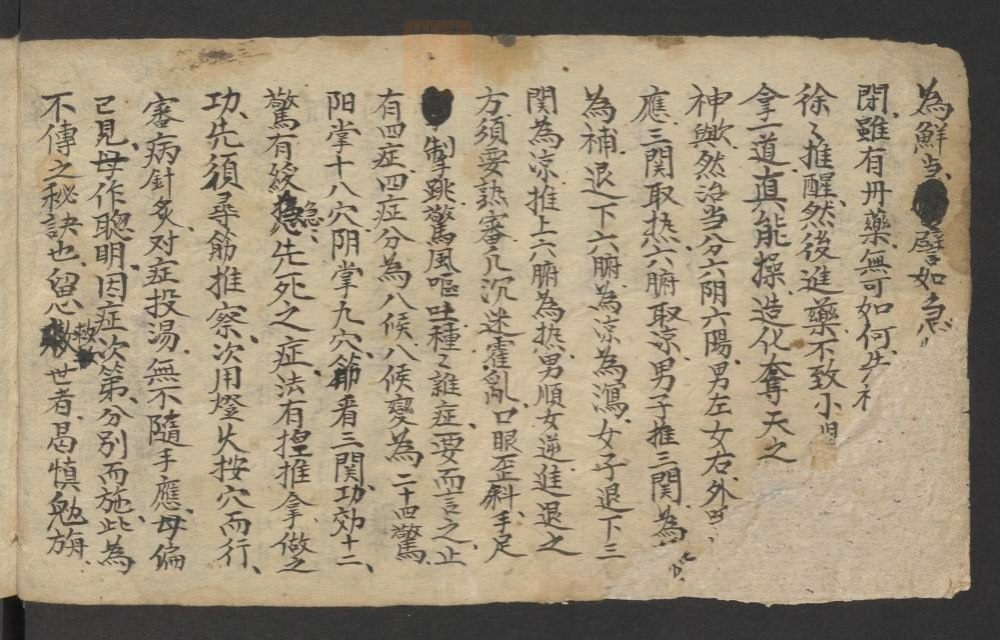 為鮮当、譬如急
閉、雖有丹藥無可如何、先
徐〻推醒、然後進藥、不致小児
拿一道、真能操造化奪天之
神欤、與然治当分六阴六陽、男左女右、外
應、三関取热、六腑取凉、男子推三関為
為補、退下六腑為凉為瀉、女子退下三
関為凉、推上六腑為热、男順女逆、進退之
方、須要熟審、凡沉迷霍亂、口眼歪斜、手足
掣跳、驚風嘔吐、種〻雜症、要而言之、止
有四症、四症分為八候、八候變為二十四驚、
阳掌十八穴、阴掌九穴、節看三関、功効十二、
驚有緩急、先死之症、法有揑推拿做之
功、先須尋筋推察、次用燈火按穴而行、
審病針炙、对症投湯、無不隨手應、毋偏
已見、毋作聰明、因症次第、分別而施、此為
不傳之秘訣也、留心救世者、曷慎勉旃、